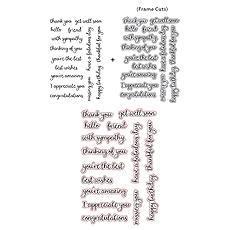 (Frame Cuts)
thank you get well soon
hello friend
with sympathy
thinking of you
you're the best
best wishes
you're amazing
I appreciate you
congratulations
missed you
have a fabulous day
happy birthday
thankful for you
+
thank you get well soon
hello friend
with sympathy
thinking of you
you're the best
best wishes
you're amazing
I appreciate you
congratulations
missed you
have a fabulous day
happy birthday
thankful for you
thank you get well soon
hello friend
with sympathy
thinking of you
you're the best
best wishes
you're amazing
I appreciate you
congratulations
missed you
have a fabulous day
happy birthday
thankful for you